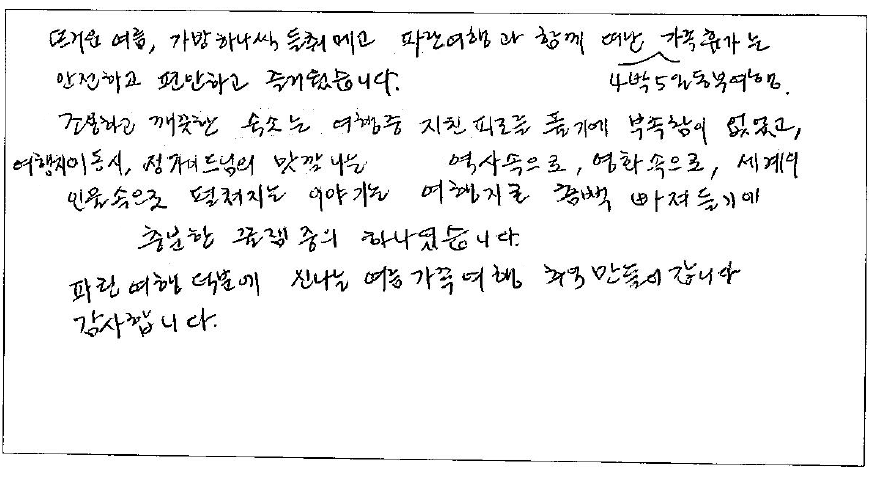 뜨거운 여름, 가방하나씩 들춰메고 파란여행과 함께 떠난 가족휴가는
4박5일동북여행.
안전하고 편안하고 즐거웠습니다.
조용하고 깨끗한 숙소는 여행중 지친피로를 풀기에 부족함이 없었고,
여행지이동시, 정가이드님의 맛깔나는 역사속으로, 영화속으로, 세계의
인물속으로 펼쳐지는 이야기는 여행지로 흠뻑 빠져들기에
충분한 꿀잼중의 하나였습니다.
파란여행 덕분에 신나는 여름가족여행 추억만들어갑니다
감사합니다.